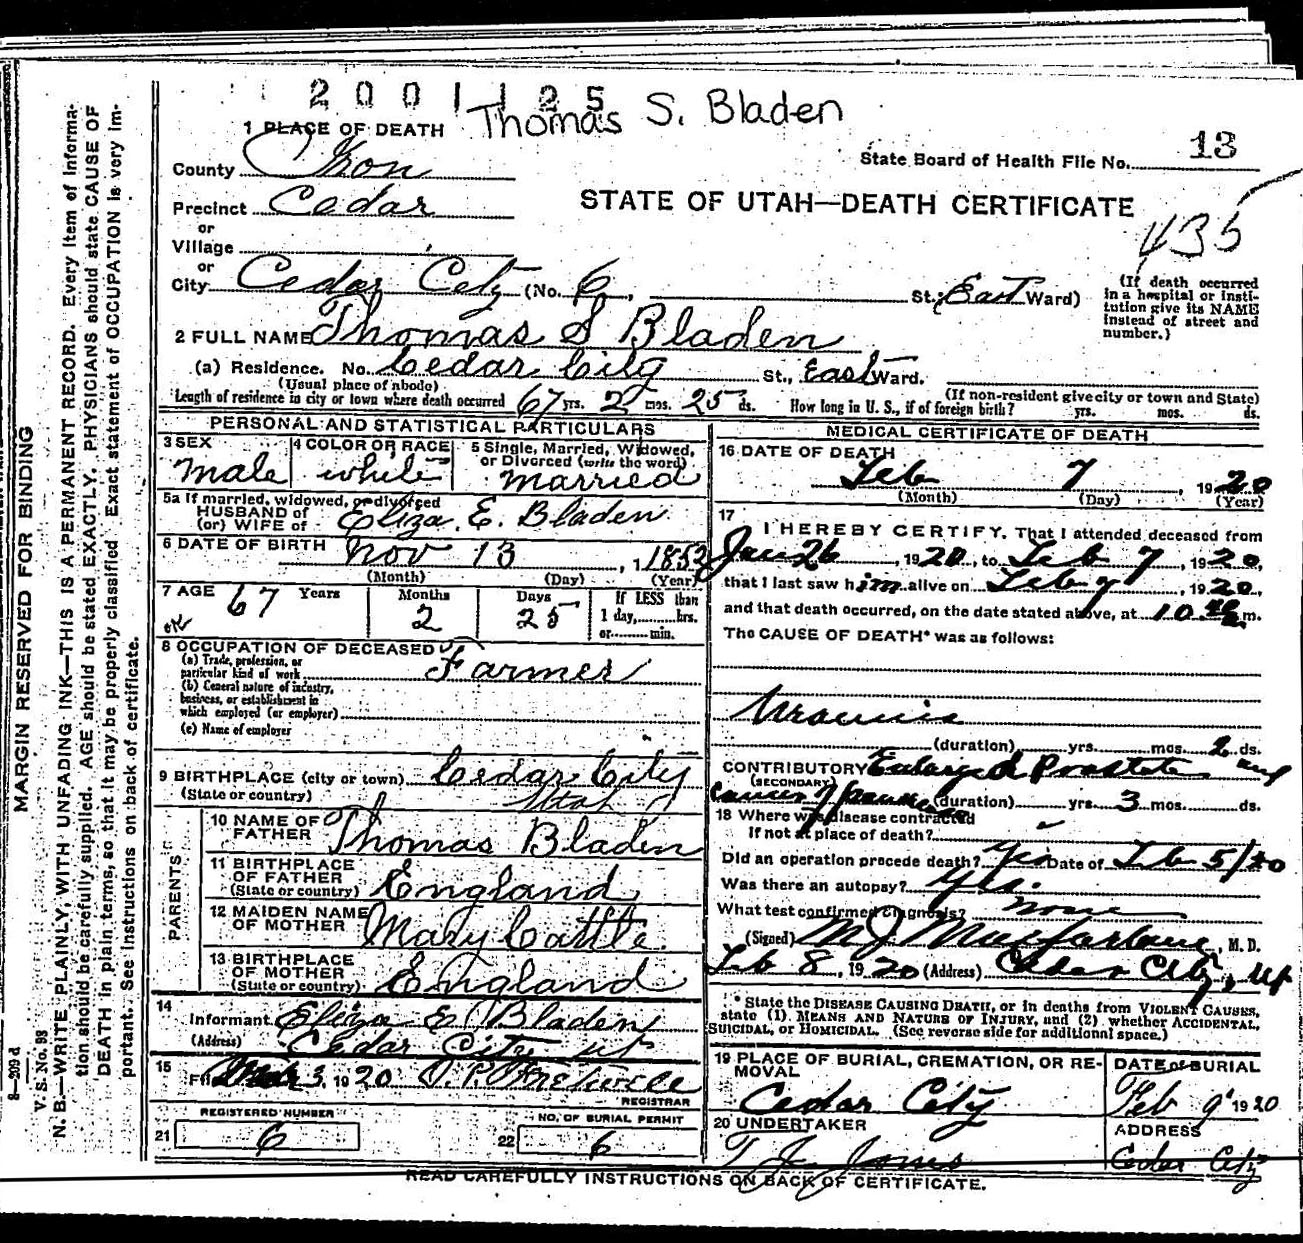 2001125
Thomas S. Bladen
1 PLACE OF DEATH
State Board of Health File No. 13
County Iron
STATE OF UTAH—DEATH CERTIFICATE
Precinct Cedar
435
or
Village
or
City Cedar City (No. 6, St; East Ward)
(If death occurred in a hospital or institution give its NAME instead of street and number.)
2 FULL NAME Thomas S Bladen
(a) Residence. No. Cedar City St., East Ward.
(Usual place of abode) (If non-resident give city or town and State)
Length of residence in city or town where death occurred 67 yrs. 2 mos. 25 ds. How long in U. S., if of foreign birth? yrs. mos. ds.
PERSONAL AND STATISTICAL PARTICULARS
3 SEX 4 COLOR OR RACE 5 Single, Married, Widowed, or Divorced (write the word)
Male white married
5a If married, widowed, or divorced
HUSBAND of
(or) WIFE of Eliza. E. Bladen
6 DATE OF BIRTH Nov 13, 1852
(Month) (Day) (Year)
7 AGE 67 Years Months 2 Days 25 If LESS than 1 day, hrs. or min.
8 OCCUPATION OF DECEASED
(a) Trade, profession, or particular kind of work Farmer
(b) General nature of industry, business, or establishment in which employed (or employer)
(c) Name of employer
9 BIRTHPLACE (city or town) Cedar City
(State or country) Utah
PARENTS
10 NAME OF FATHER Thomas Bladen
11 BIRTHPLACE OF FATHER (State or country) England
12 MAIDEN NAME OF MOTHER Mary Cattle
13 BIRTHPLACE OF MOTHER (State or country) England
14 Informant Eliza E Bladen
(Address) Cedar City Ut
15 Filed Mar 3, 1920
REGISTRAR
REGISTERED NUMBER NO. OF BURIAL PERMIT
21 6 22 6
MEDICAL CERTIFICATE OF DEATH
16 DATE OF DEATH
Feb 7, 1920
(Month) (Day) (Year)
17 I HEREBY CERTIFY, That I attended deceased from
Jan 26, 1920, to Feb 7, 1920,
that I last saw him alive on Feb 7, 1920,
and that death occurred, on the date stated above, at 10 m.
The CAUSE OF DEATH* was as follows:
Uraemia
(duration) yrs. mos. 2 ds.
CONTRIBUTORY Enlarged Prostate and
(SECONDARY)
cancer of (duration) yrs. 3 mos. ds.
18 Where was disease contracted
If not at place of death?
Did an operation precede death? Yes Date of Feb 5/20
Was there an autopsy? Yes.
What test confirmed diagnosis? none
(Signed) M J Macfarlane, M. D.
Feb 8, 1920 (Address) Cedar City, Ut
* State the DISEASE CAUSING DEATH, or in deaths from VIOLENT CAUSES, state (1) MEANS AND NATURE OF INJURY, and (2) whether ACCIDENTAL, SUICIDAL, or HOMICIDAL. (See reverse side for additional space.)
19 PLACE OF BURIAL, CREMATION, OR REMOVAL DATE of BURIAL
Cedar City Feb 9 1920
20 UNDERTAKER ADDRESS
T J Jones Cedar City
READ CAREFULLY INSTRUCTIONS ON BACK OF CERTIFICATE.
8—209 d
V. S. No. 98
MARGIN RESERVED FOR BINDING
N. B.—WRITE PLAINLY, WITH UNFADING INK—THIS IS A PERMANENT RECORD. Every item of information should be carefully supplied. AGE should be stated EXACTLY. PHYSICIANS should state CAUSE OF DEATH in plain terms, so that it may be properly classified. Exact statement of OCCUPATION is very important. See instructions on back of certificate.